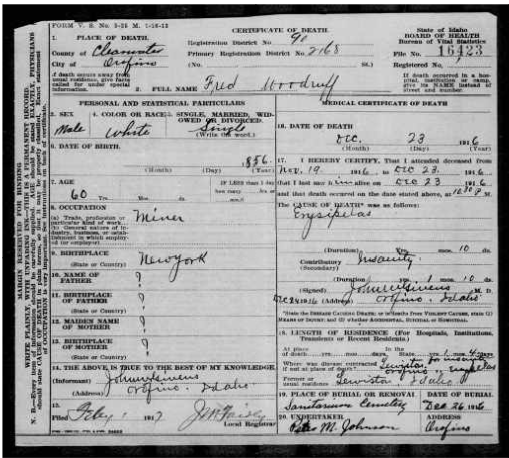 FORM V. S. No. 5-25 M. 1-16-12
CERTIFICATE OF DEATH
State of Idaho
BOARD OF HEALTH
Bureau of Vital Statistics
1. PLACE OF DEATH.
County of Clearwater
City of Orofino
Registration District No. 90
Primary Registration District No. 2168
File No. 16423
Registered No.
(No. St.)
If death occurs away from usual residence, give facts called for under special information.
If death occurred in a hospital, institution or camp, give its NAME instead of street and number.
2. FULL NAME Fred Woodruff
PERSONAL AND STATISTICAL PARTICULARS
3. SEX Male
4. COLOR OR RACE White
5. SINGLE, MARRIED, WIDOWED OR DIVORCED. Single
(Write the word.)
6. DATE OF BIRTH. 1856
(Month) (Day) (Year)
7. AGE 60 Yrs. Mos. Ds.
IF LESS than 1 day
8. OCCUPATION Miner
(a) Trade, profession or particular kind of work
(b) General nature of industry, business, or establishment in which employed (or employer)
9. BIRTHPLACE New York
(State or Country)
10. NAME OF FATHER ?
11. BIRTHPLACE OF FATHER ?
(State or Country)
12. MAIDEN NAME OF MOTHER ?
13. BIRTHPLACE OF MOTHER ?
(State or Country)
14. THE ABOVE IS TRUE TO THE BEST OF MY KNOWLEDGE.
(Informant) John W Givens
(Address) Orofino, Idaho
15. Filed 1917
Local Registrar
MEDICAL CERTIFICATE OF DEATH
16. DATE OF DEATH
Dec. 23 1916
(Month) (Day) (Year)
17. I HEREBY CERTIFY, That I attended deceased from
Nov. 19 1916 to Dec 23 1916
that I last saw him alive on Dec 23 1916
and that death occurred on the date stated above, at 10:30 P. M.
The CAUSE OF DEATH* was as follows:
Erysipelas
(Duration) Yrs. mos. 10 ds.
Contributory Insanity
(Secondary)
(Duration) yrs. 1 mos. 10 ds.
(Signed) John W Givens M. D.
Dec 24 1916 (Address) Orofino, Idaho
*State the DISEASE CAUSING DEATH; or in deaths from VIOLENT CAUSES, state (1) MEANS OF INJURY; and (2) whether ACCIDENTAL, SUICIDAL or HOMICIDAL.
18. LENGTH OF RESIDENCE (For Hospitals, Institutions, Transients or Recent Residents.)
At place of death yrs. mos. days. State yrs. 1 mos. 4 days
Where was disease contracted if not at place of death?
Former or usual residence Lewiston, Idaho
19. PLACE OF BURIAL OR REMOVAL Sanitarium Cemetery
DATE OF BURIAL Dec 26 1916
20. UNDERTAKER Peter M. Johnson
ADDRESS Orofino
MARGIN RESERVED FOR BINDING
WRITE PLAINLY, WITH UNFADING INK—THIS IS A PERMANENT RECORD.